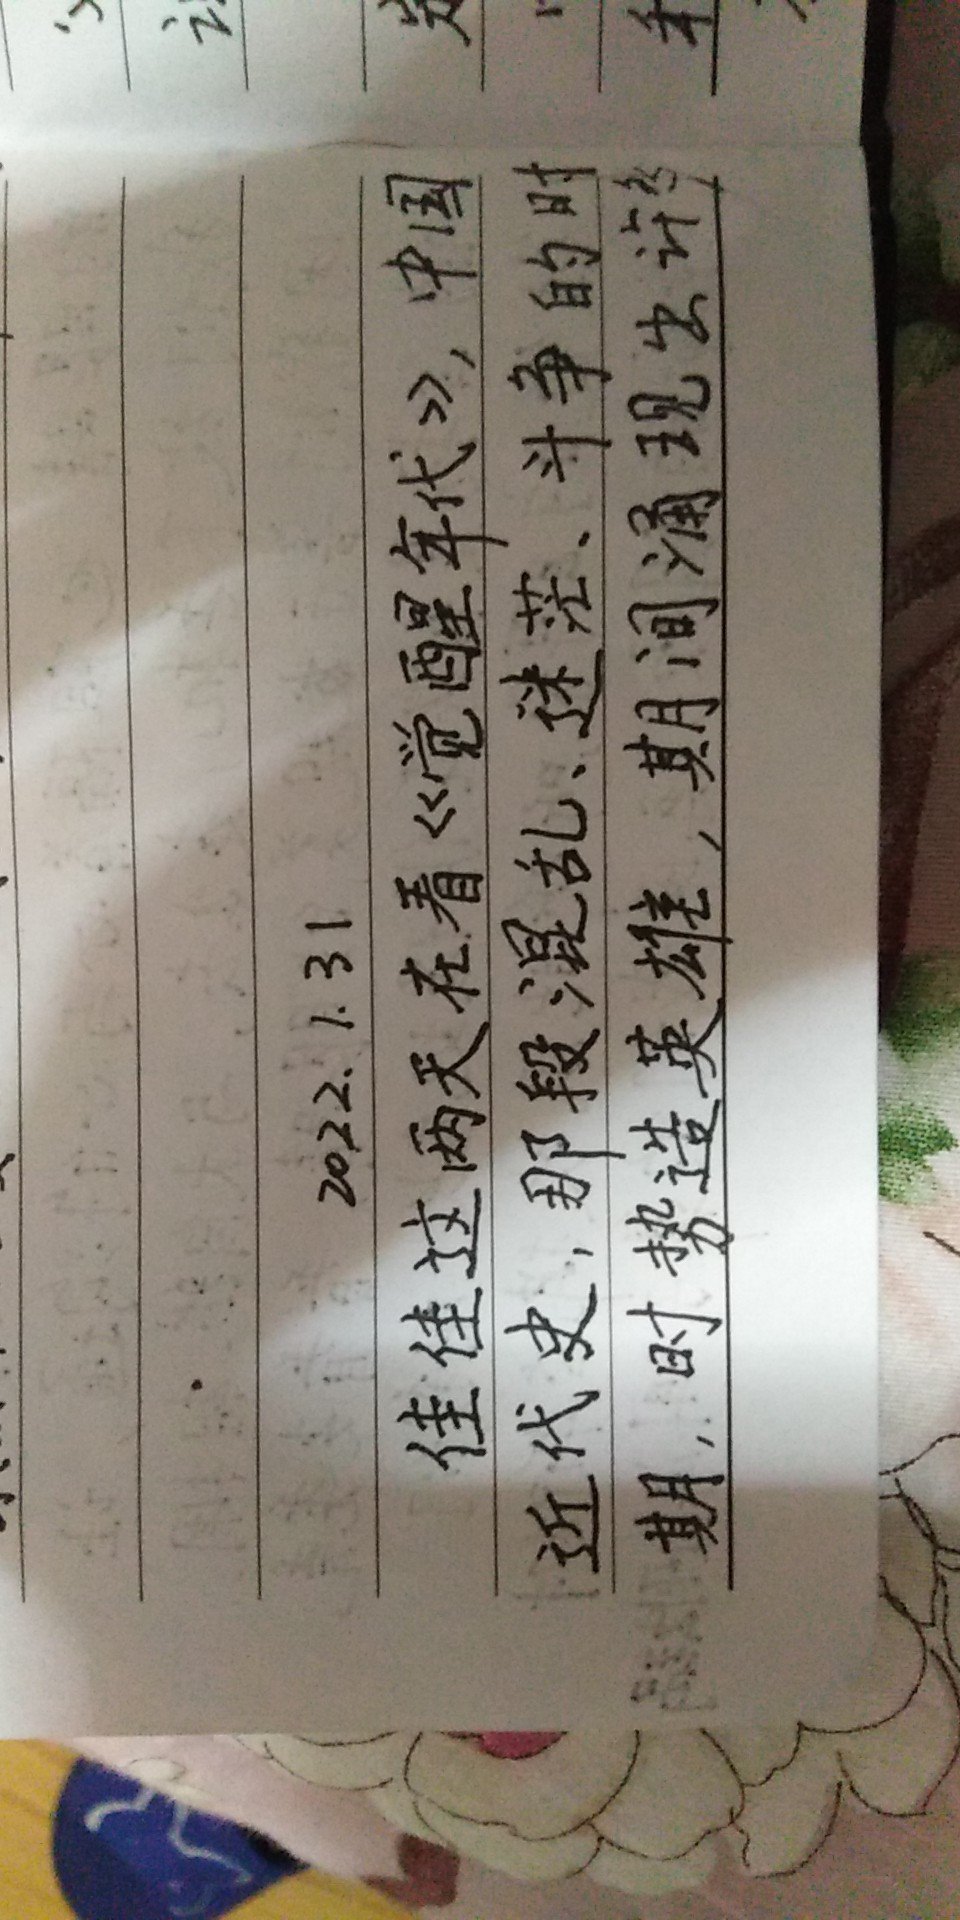 2022.1.31
佳佳这两天在看《觉醒年代》，中国
近代史，那段混乱、迷茫、斗争的时
期，时势造英雄，期间涌现出许多